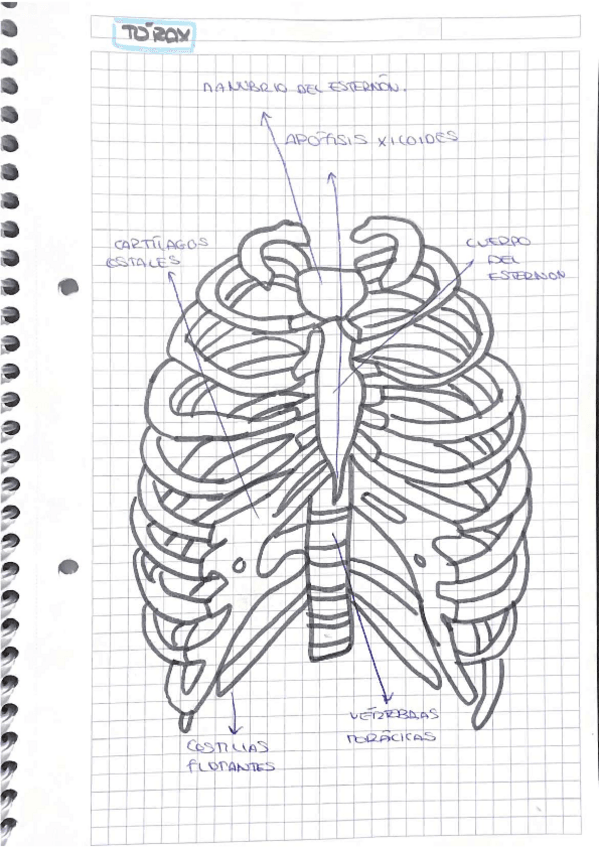 TÓRAX
MANUBRIO DEL ESTERNÓN.
APÓFISIS XICOIDES
CARTÍLAGOS
COSTALES
CUERPO
DEL
ESTERNON
VÉRTEBRAS
TORÁCICAS
COSTILLAS
FLOTANTES